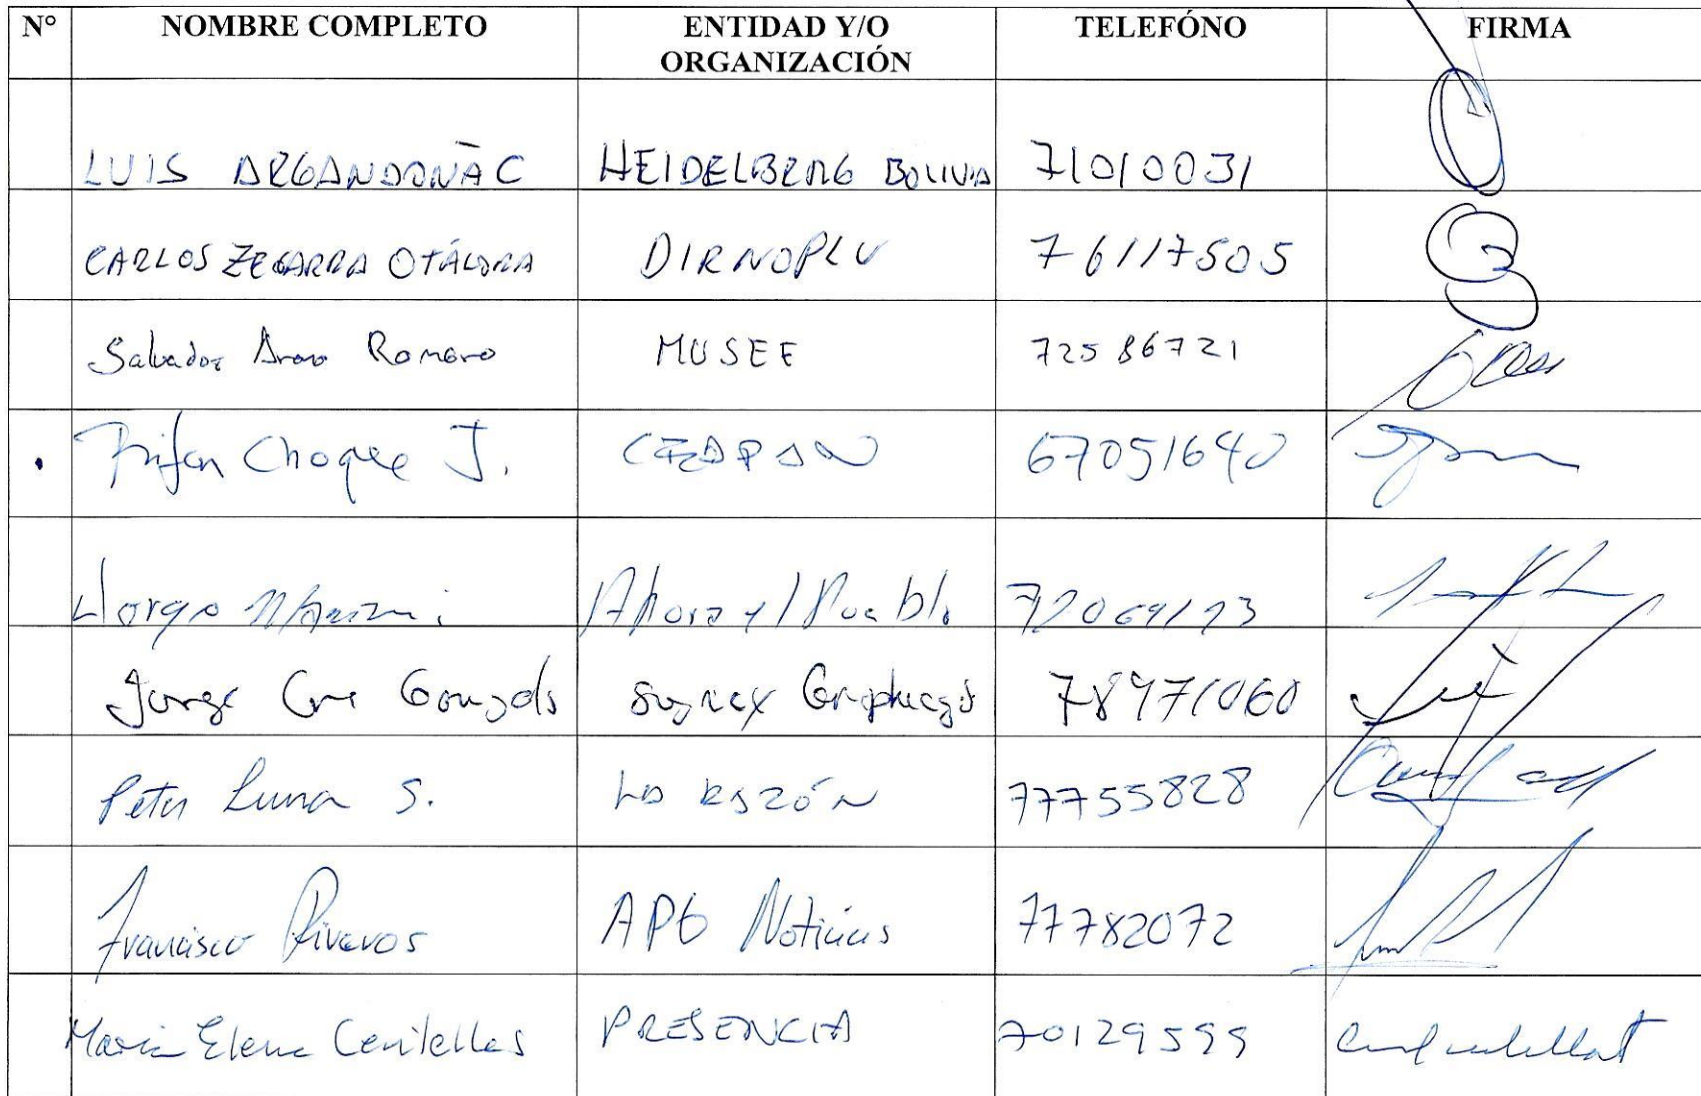 N° NOMBRE COMPLETO ENTIDAD Y/O ORGANIZACIÓN TELEFÓNO FIRMA
LUIS ARGANDOÑA C HEIDELBERG BOLIVIA 71010031
CARLOS ZEGARRA OTÁLORA DIRNOPLU 76117505
Salvador Romero MUSEF 72586721
Choque J. 67051640
Jorge Mamani Ahora el Pueblo
Jorge 78971060
Peter Luna S. LA RAZÓN 77755828
Francisco Riveros APG Noticias 77782072
Maria Elena Centellas PRESENCIA 70129599